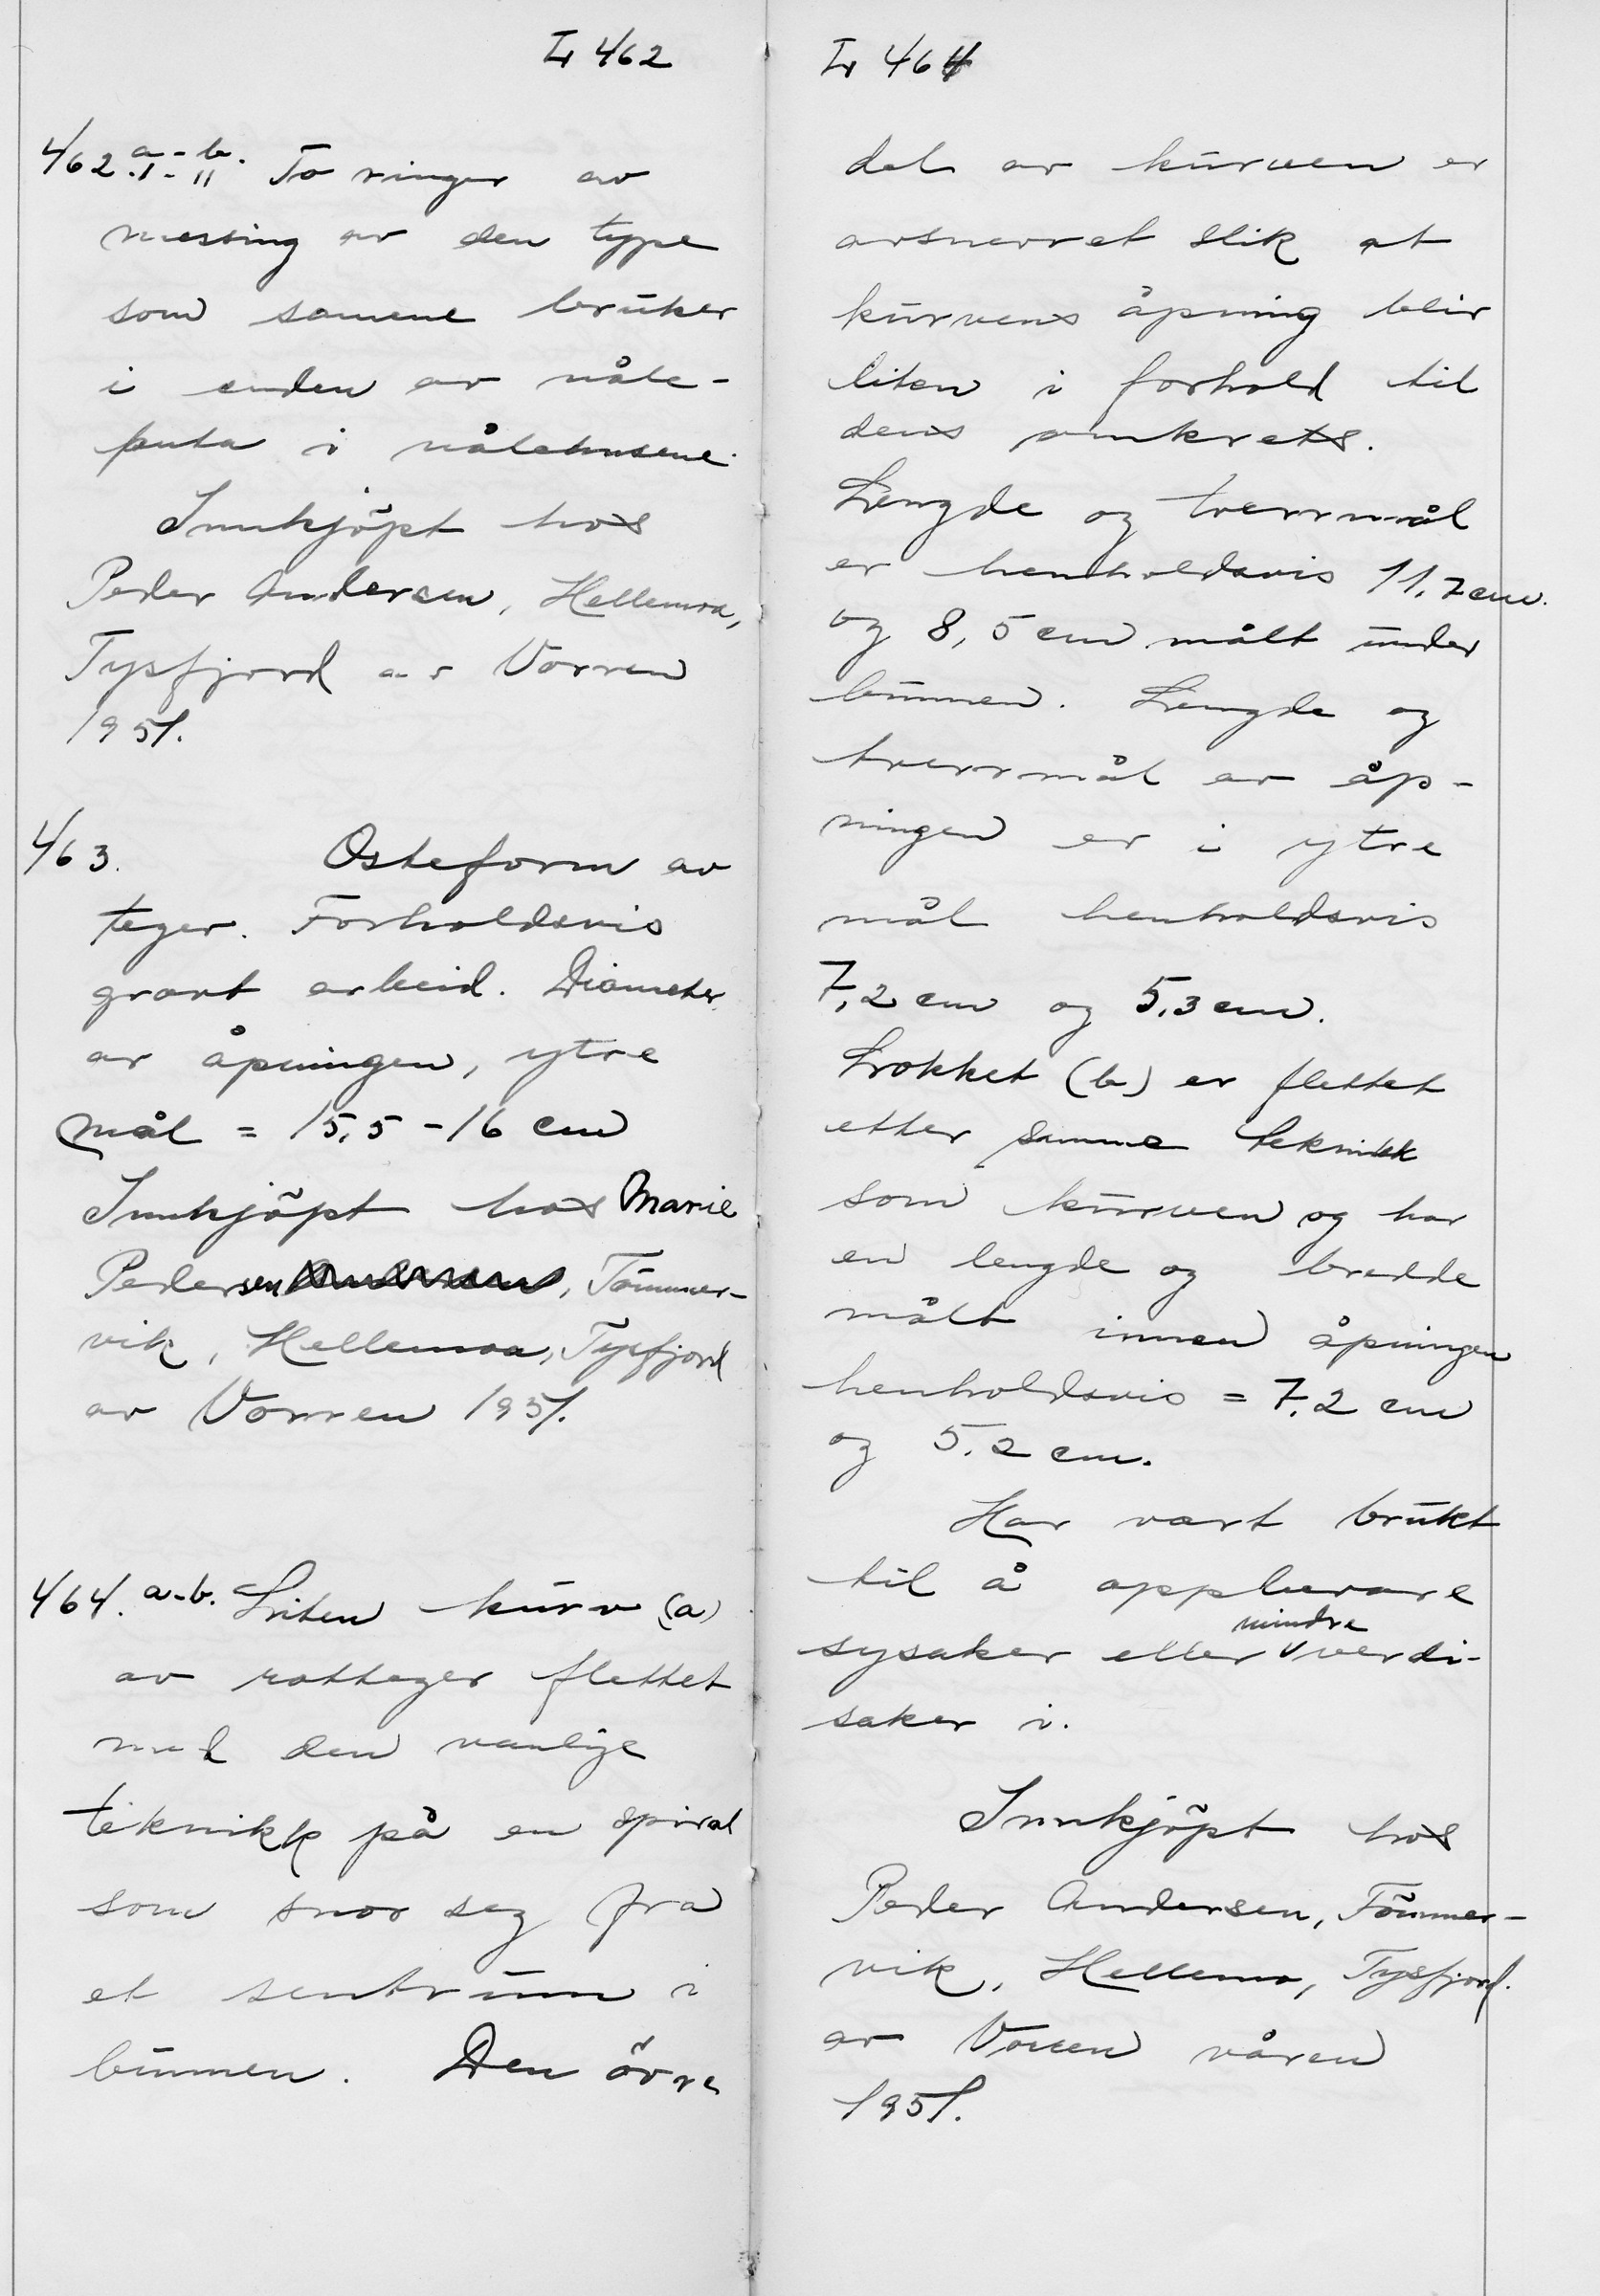 Lr 462
462 a-b. I-II To ringer av
messing av den type
som samene bruker
i enden av nåle-
puta i nålehusene.
Innkjöpt hos
Peder Andersen, Hellemoa,
Tysfjord av Vorren
1951.
463. Osteform av
teger. Forholdsvis
grovt arbeid. Diameter
av åpningen, ytre
mål = 15,5 - 16 cm
Innkjöpt hos Marie
Pedersen, Tömmer-
vik, Hellemoa, Tysfjord
av Vorren 1951.
464. a-b. Liten kurv (a)
av rotteger flettet
med den vanlige
teknikk på en spiral
som snor seg fra
et sentrum i
bunnen. Den övre
Lr 464
del av kurven er
avsnevret slik at
kurvens åpning blir
liten i forhold til
dens omkrets.
Lengde og tverrmål
er henholdsvis 11,7 cm.
og 8,5 cm målt under
bunnen. Lengde og
tverrmål av åp-
ningen er i ytre
mål henholdsvis
7,2 cm og 5,3 cm.
Lokket (b) er flettet
etter samme teknikk
som kurven og har
en lengde og bredde
målt innen åpningen
henholdsvis = 7,2 cm
og 5,2 cm.
Har vært brukt
til å oppbevare
sysaker eller mindre verdi-
saker i.
Innkjöpt hos
Peder Andersen, Tömmer-
vik, Hellemo, Tysfjord.
av Vorren våren
1951.